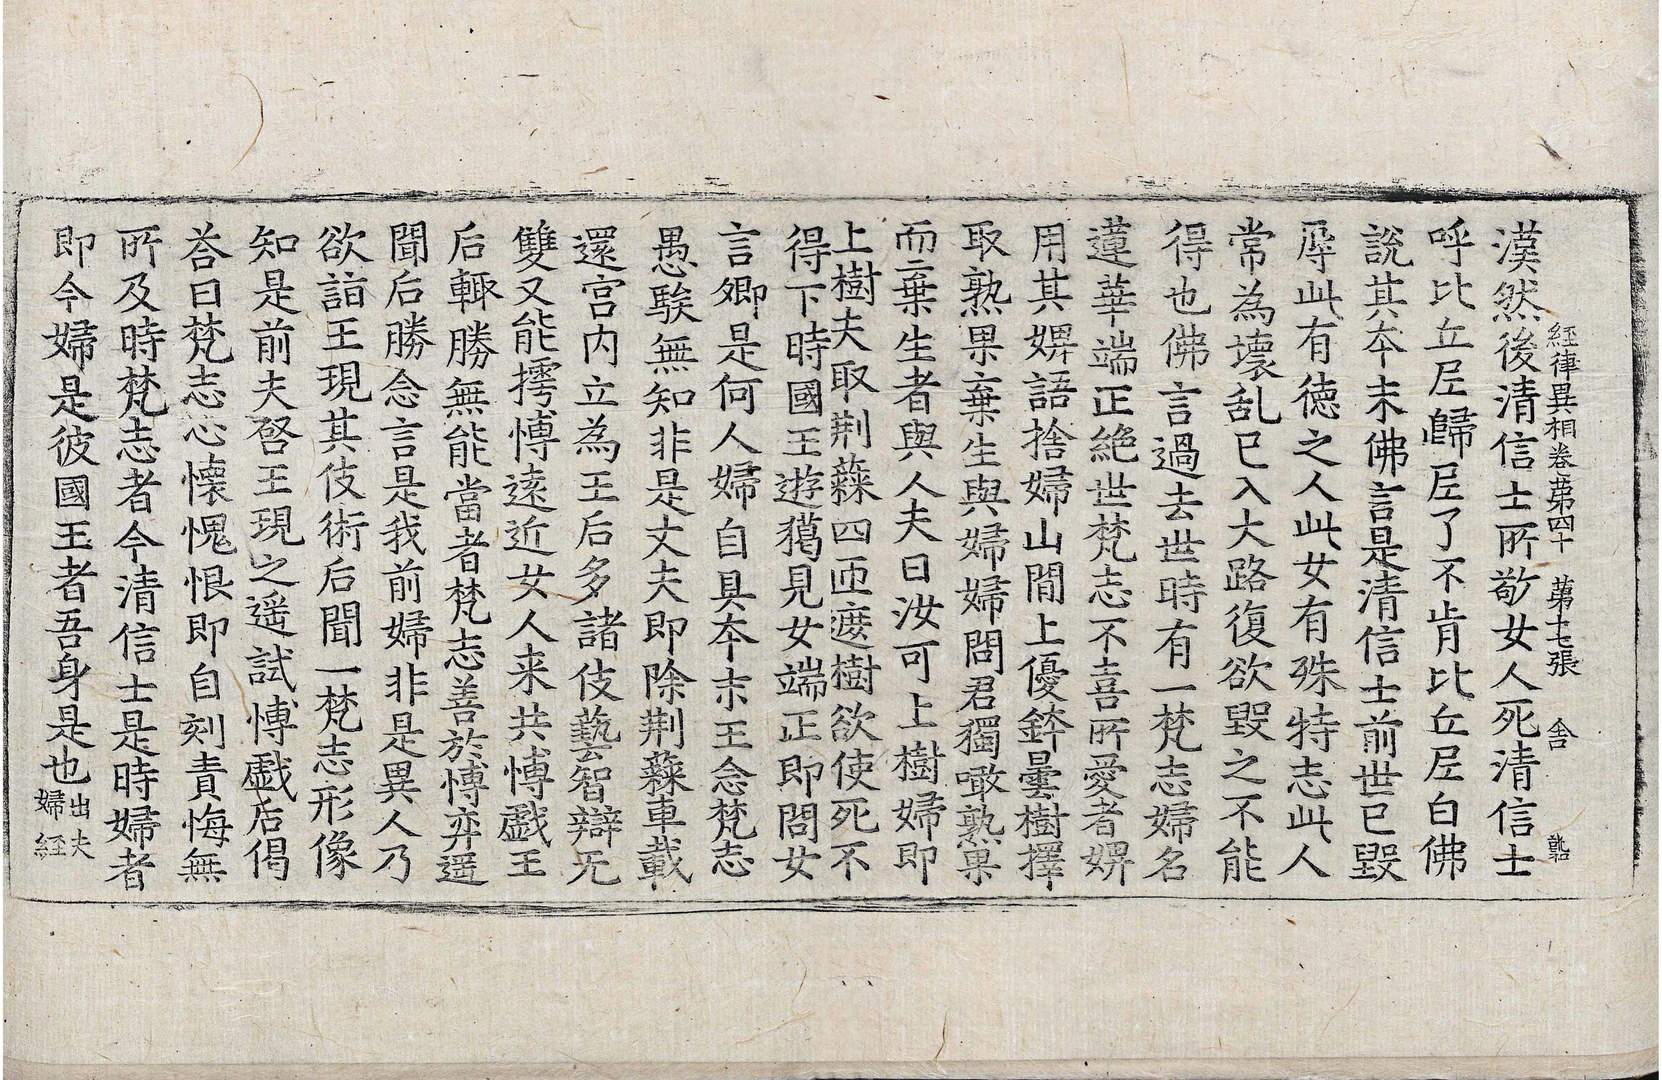 經律異相卷第四十 第十七張 舎
漠然後清信士所敬女人死清信士
呼比丘尼歸尼了不肯比丘尼白佛
說其夲末佛言是清信士前世已毀
辱此有德之人此女有殊特志此人
常為壞乱已入大路復欲毀之不能
得也佛言過去世時有一梵志婦名
蓮華端正絕世梵志不喜所愛者婢
用其婢語捨婦山間上優鉢曇樹擇
取熟果棄生與婦婦問君獨噉熟果
而棄生者與人夫曰汝可上樹婦即
上樹夫取荆蕀四匝遮樹欲使死不
得下時國王遊獦見女端正即問女
言卿是何人婦自具夲末王念梵志
愚騃無知非是丈夫即除荆蕀車載
還宮内立為王后多諸伎藝智辯无
雙又能摴博遠近女人来共博戯王
后輙勝無能當者梵志善於博弈遥
聞后勝念言是我前婦非是異人乃
欲詣王現其伎術后聞一梵志形像
知是前夫啓王現之遥試博戯后偈
荅曰梵志心懐愧恨即自刻責悔無
所及時梵志者今清信士是時婦者
即今婦是彼國王者吾身是也出夫
婦經